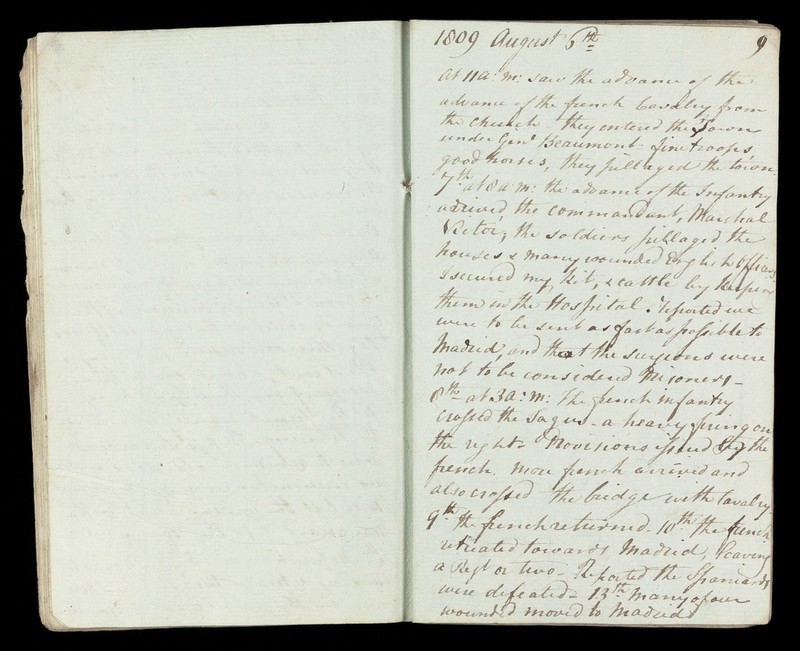 1809 August 6th 9
at 11 a: m: saw the advance of the
advance of the french Cavalry from
the Church - they entered the Town
under Genl Beaumont - fine troops
good horses, they pillaged the town.
7th at 8 a m: the advance of the Infantry
arrived, the commandant, Marshal
Victor, the soldiers pillaged the
houses & many wounded English Officers
I secured my kit, & cattle by keeping
them in the Hospital. Reported we
were to be sent as fast as possible to
Madrid, and that the surgeons were
not to be considered Prisoners -
8th at 3 a: m: the french infantry
crossed the Tagus - a heavy firing on
the right - Provisions issued by the
french. more french arrived and
also crossed the bridge with Cavalry.
9th the french returned - 10th the french
retreated towards Madrid, leaving
a Regt or two - Reported the Spaniards
were defeated - 13th Many of our
wounded moved to Madrid